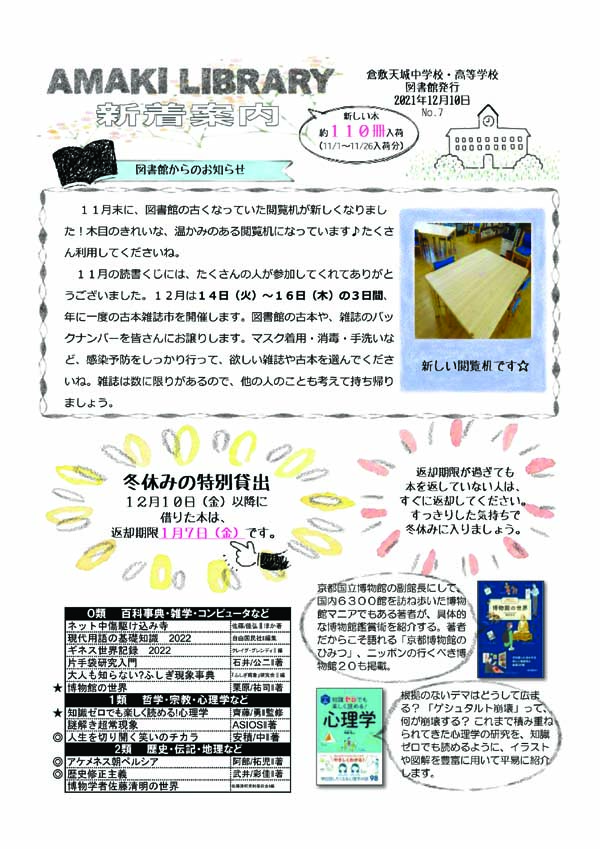 AMAKI LIBRARY
新着案内
倉敷天城中学校・高等学校
図書館発行
2021年12月10日
No.7
新しい本
約110冊入荷
(11/1～11/26入荷分)
図書館からのお知らせ
１１月末に、図書館の古くなっていた閲覧机が新しくなりまし
た！木目のきれいな、温かみのある閲覧机になっています♪たくさ
ん利用してくださいね。
１１月の読書くじには、たくさんの人が参加してくれてありがと
うございました。１２月は１４日（火）～１６日（木）の３日間、
年に一度の古本雑誌市を開催します。図書館の古本や、雑誌のバッ
クナンバーを皆さんにお譲りします。マスク着用・消毒・手洗いな
ど、感染予防をしっかり行って、欲しい雑誌や古本を選んでくださ
いね。雑誌は数に限りがあるので、他の人のことも考えて持ち帰り
ましょう。
新しい閲覧机です☆
冬休みの特別貸出
１２月１０日（金）以降に
借りた本は、
返却期限１月７日（金）です。
返却期限が過ぎても
本を返していない人は、
すぐに返却してください。
すっきりした気持ちで
冬休みに入りましょう。
０類　百科事典・雑学・コンピュータなど
ネット中傷駆け込み寺 佐藤/佳弘∥ほか著
現代用語の基礎知識　2022 自由国民社∥編集
ギネス世界記録　2022 クレイグ・グレンディ∥編
片手袋研究入門 石井/公二∥著
大人も知らない?ふしぎ現象事典 「ふしぎ現象」研究会∥編
★ 博物館の世界 栗原/祐司∥著
１類　哲学・宗教・心理学など
★ 知識ゼロでも楽しく読める!心理学 齊藤/勇∥監修
謎解き超常現象 ASIOS∥著
◎ 人生を切り開く笑いのチカラ 安積/中∥著
２類　歴史・伝記・地理など
◎ アケメネス朝ペルシア 阿部/拓児∥著
◎ 歴史修正主義 武井/彩佳∥著
博物学者佐藤清明の世界
京都国立博物館の副館長にして、
国内６３００館を訪ね歩いた博物
館マニアでもある著者が、具体的
な博物館鑑賞術を紹介する。著者
だからこそ語れる「京都博物館の
ひみつ」、ニッポンの行くべき博
物館２０も掲載。
博物館の世界
根拠のないデマはどうして広ま
る？「ゲシュタルト崩壊」って、
何が崩壊する？ これまで積み重ね
られてきた心理学の研究を、知識
ゼロでも読めるように、イラスト
や図解を豊富に用いて平易に紹介
します。
知識ゼロでも
楽しく読める!
心理学
98